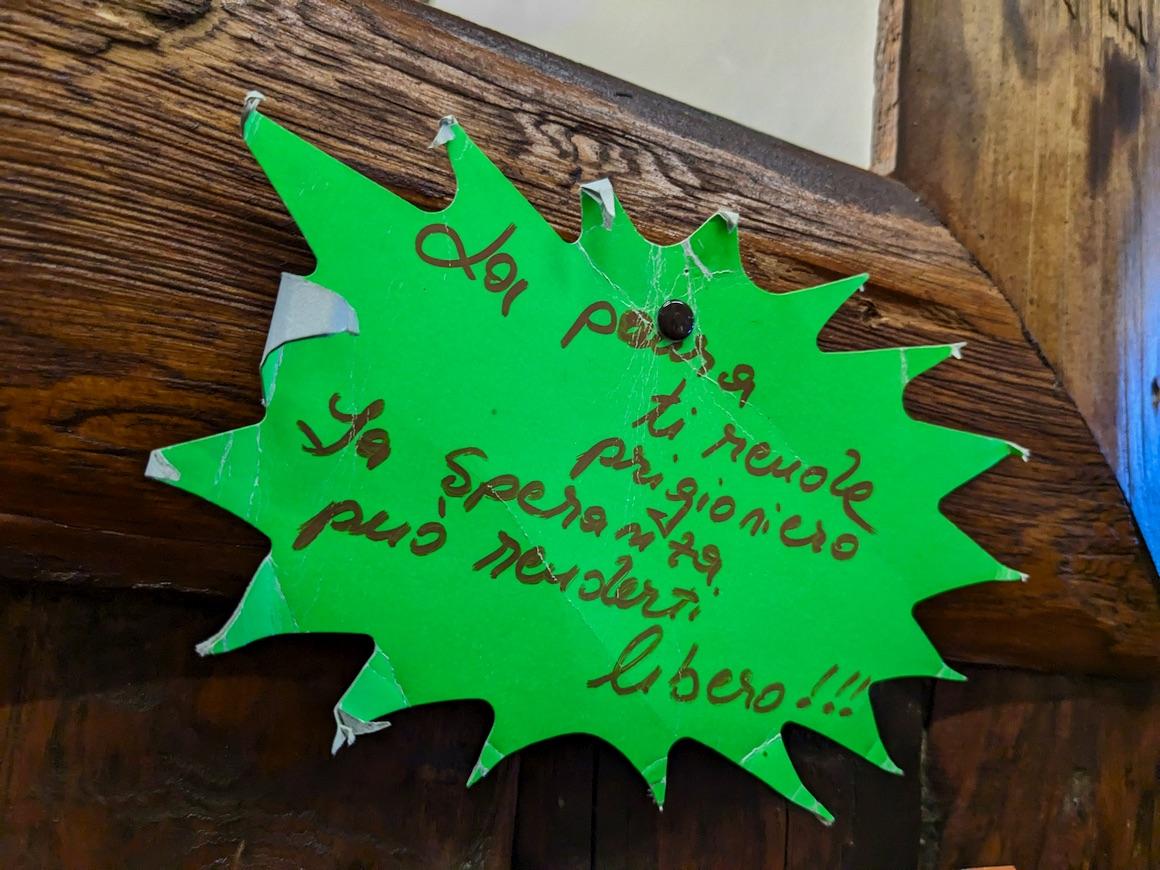 La paura
ti rende
prigioniero
La Speranza
può renderti
libero!!!